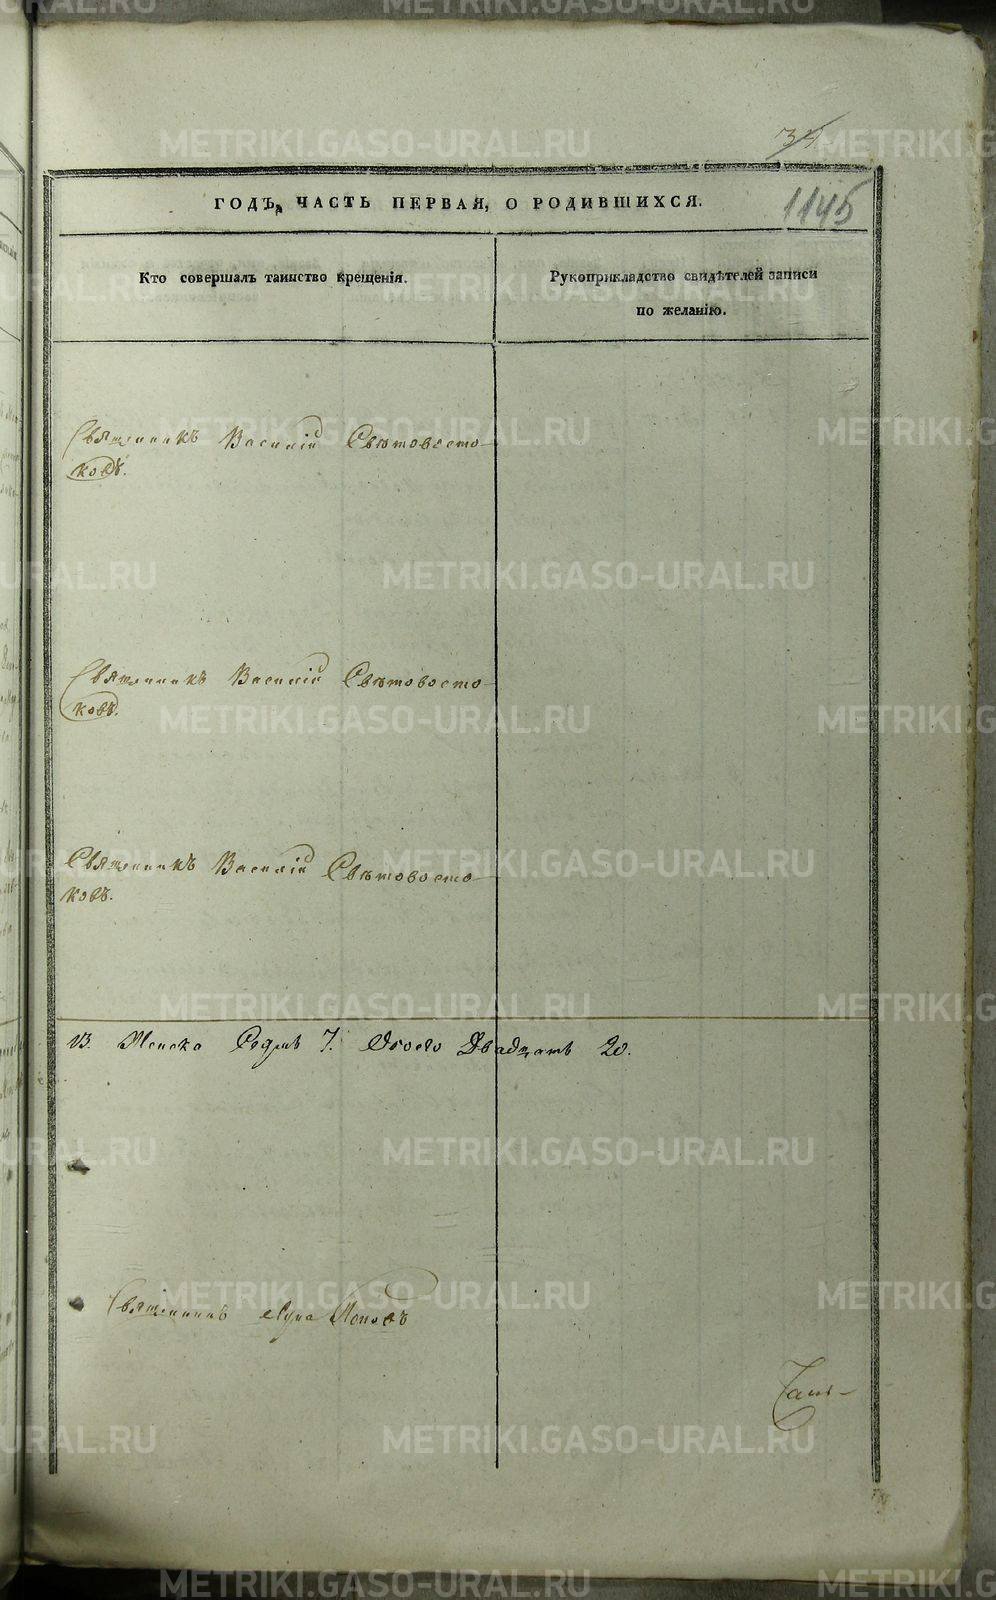 METRIKI.GASO-URAL.RU
34
1145
ГОДЪ, ЧАСТЬ ПЕРВАЯ, О РОДИВШИХСЯ.
Кто совершалъ таинство крещенія.
Рукоприкладство свидѣтелей записи
по желанію.
Священникъ Василій Свѣтовосто-
ковъ.
Священникъ Василій Свѣтовосто-
ковъ.
Священникъ Василій Свѣтовосто-
ковъ.
13. Женска Седмь 7. Обоего Двадцать 20.
Священникъ Лука Поповъ
Часть